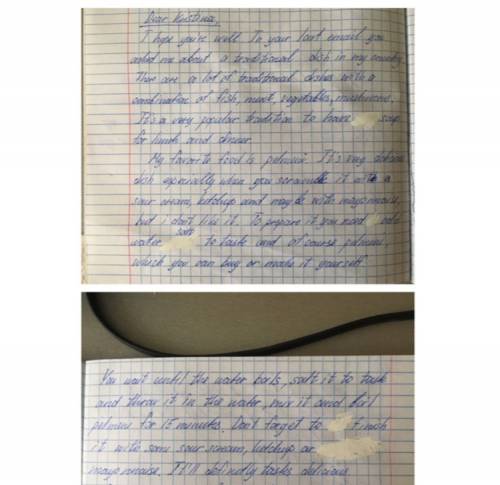 Dear Kristina,
I hope you're well. In your last email you
asked me about a traditional dish in my country.
There are a lot of traditional dishes with a
combination of fish, meat, vegetables, mushrooms.
It's a very popular tradition to have soup
for lunch and dinner
My favorite food is pelmeni. It's very delicious
dish especially when you it with a
sour cream, ketchup and maybe with mayonnaise,
but i don't like it. To prepare it you need
salt
water to taste and of course pelmeni
which you can buy or make it yourself
You wait until the water boils, salt it to taste
and throw it in the water, mix it and boil
pelmeni for 15 minutes. Don't forget to finish
it with some sour scream, ketchup or
mayonnaise. It'll definitly taste delicious